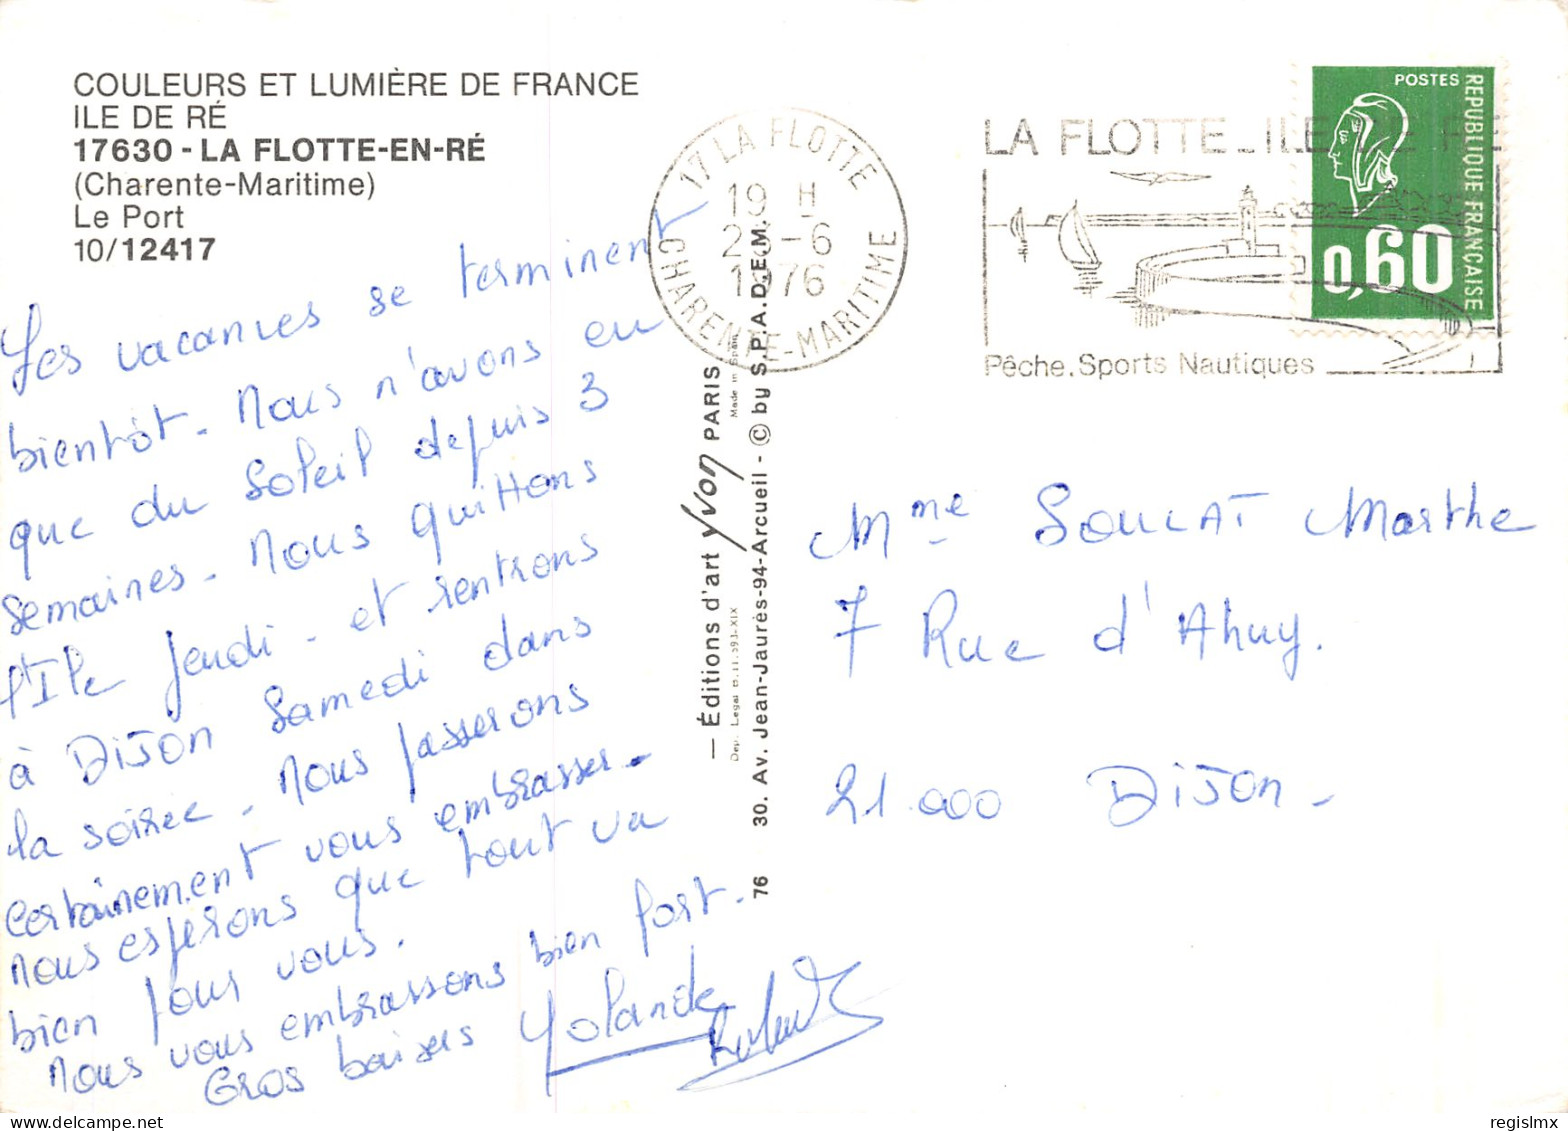 COULEURS ET LUMIÈRE DE FRANCE
ILE DE RÉ
17630 - LA FLOTTE-EN-RÉ
(Charente-Maritime)
Le Port
10/12417
Les vacances se terminent
bientôt. Nous n'avons eu
que du Soleil depuis 3
Semaines. Nous quittons
l'Ile Jeudi. et rentrons
à Dijon Samedi dans
la soirée. Nous passerons
certainement vous embrasser.
nous espérons que tout va
bien pour vous.
Nous vous embrassons bien fort.
Gros baisers Yolande
17 LA FLOTTE
19 H
-6
1976
CHARENTE-MARITIME
LA FLOTTE _ ILE DE RE
Pêche. Sports Nautiques
POSTES
REPUBLIQUE FRANÇAISE
0,60
— Éditions d'art Yvon PARIS
Made in Spain
Dep. Legal B.11.593-XIX
76 30. Av. Jean-Jaurès-94-Arcueil - © by S.P.A.D.E.M.
Mme SOULAT Marthe
7 Rue d'Ahuy.
21.000 Dijon.
regislmx